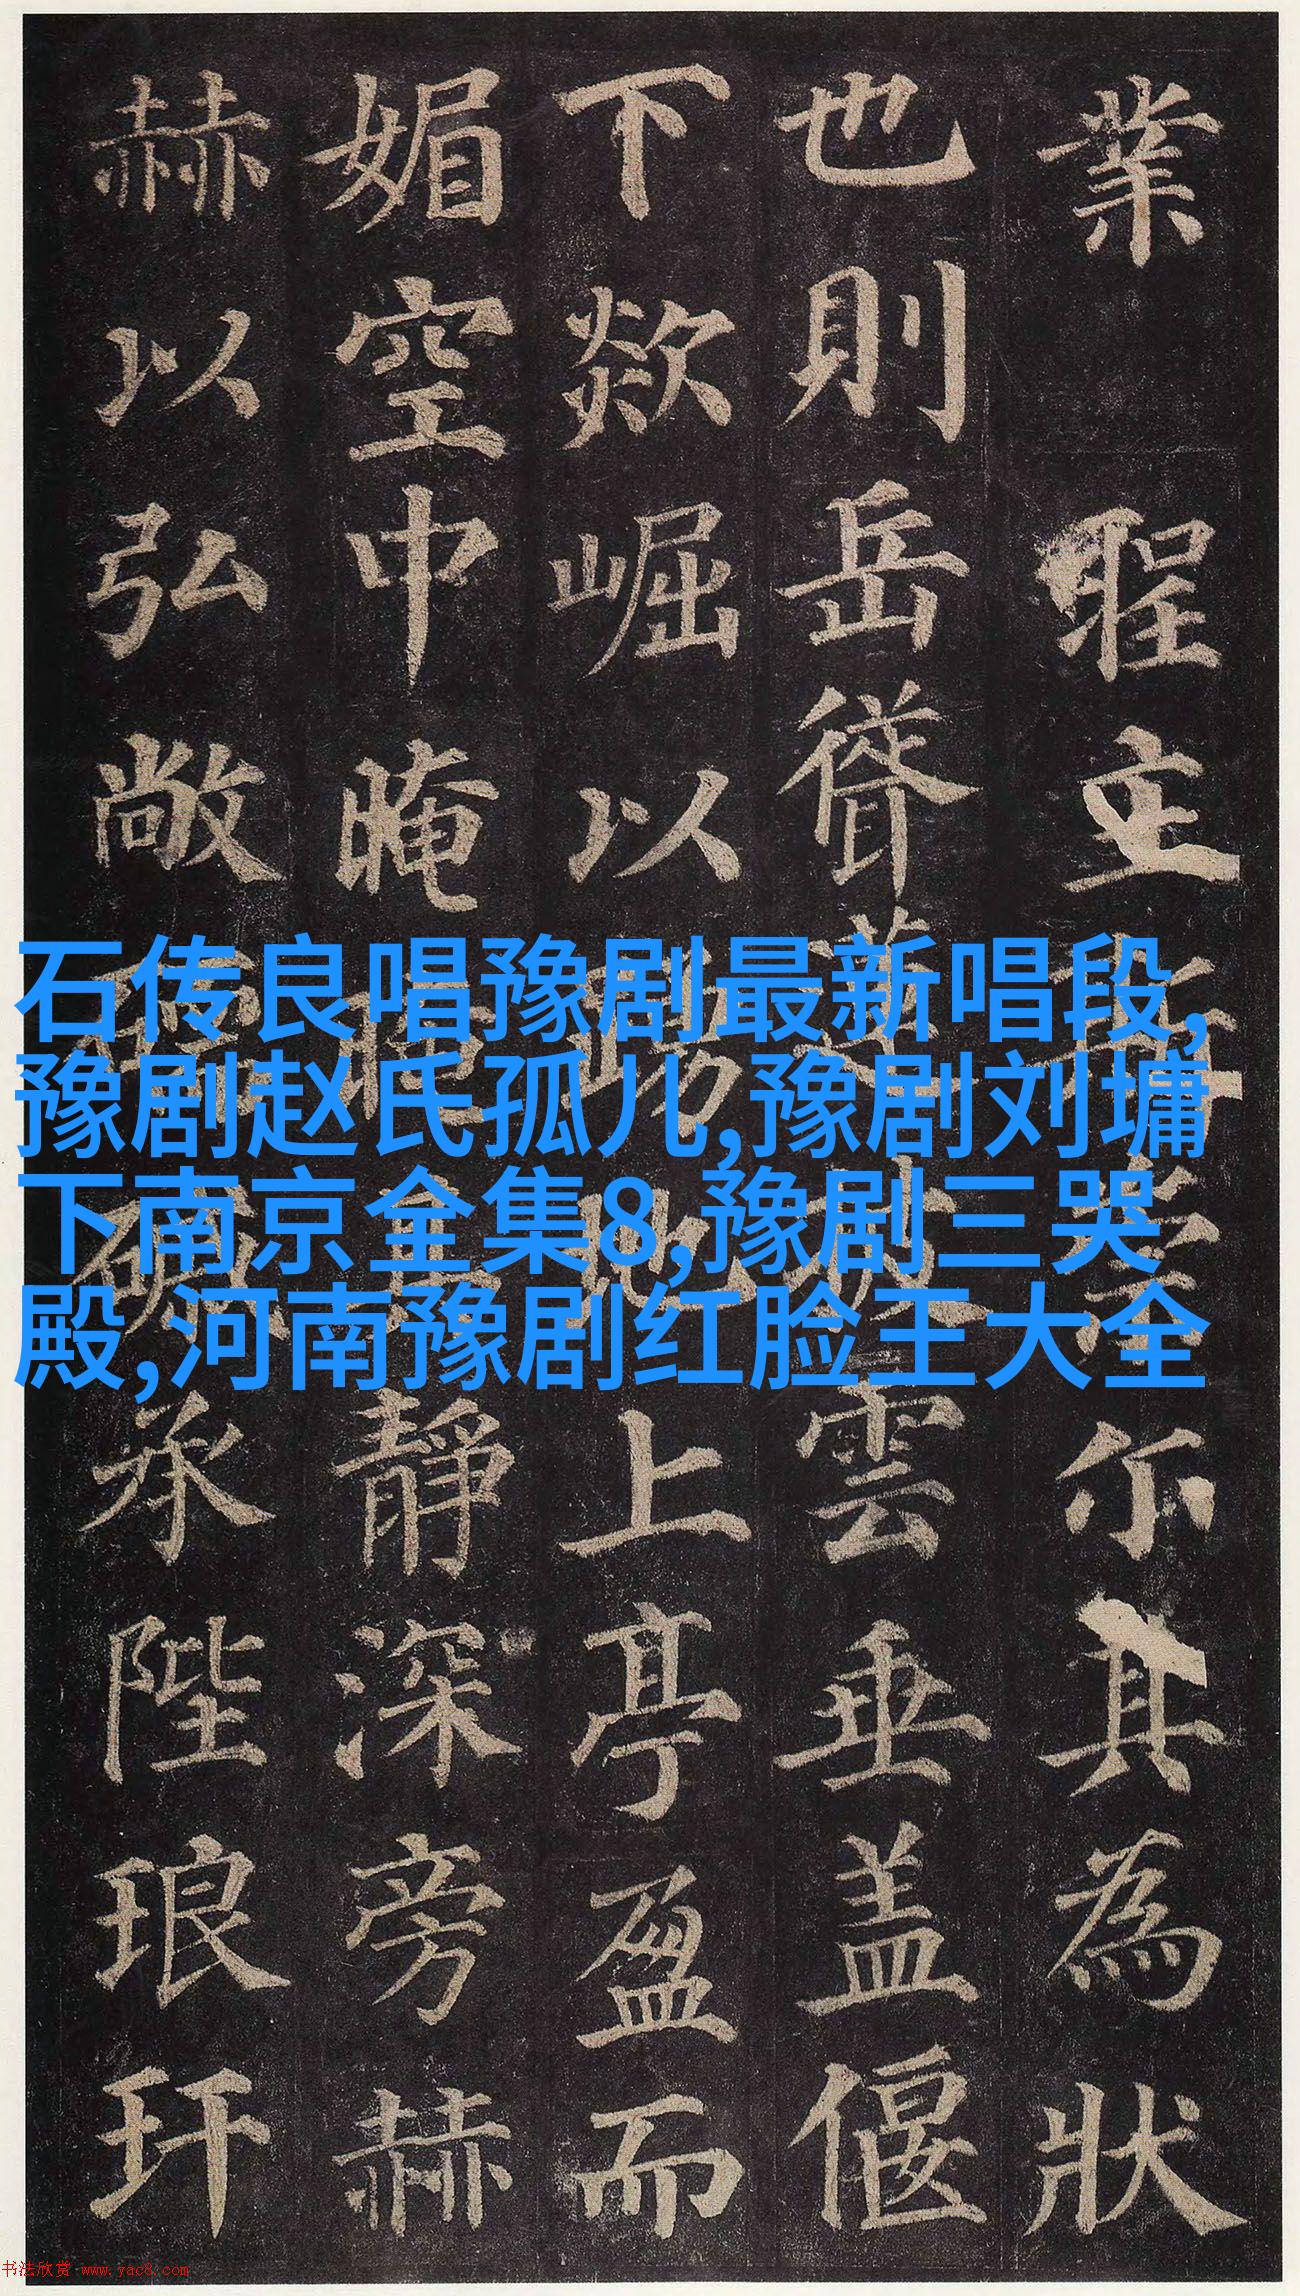 業聖立尔其為狀
也則岳聳雲垂盖偃
下欻崛以上亭盈而
媚空中晻靜深旁赫
赫以弘敞承陛琅玕
石传良唱豫剧最新唱段,
豫剧赵氏孤儿,豫剧刘墉
下南京全集8,豫剧三哭
殿,河南豫剧红脸王大全
书法欣赏 www.yac8.com